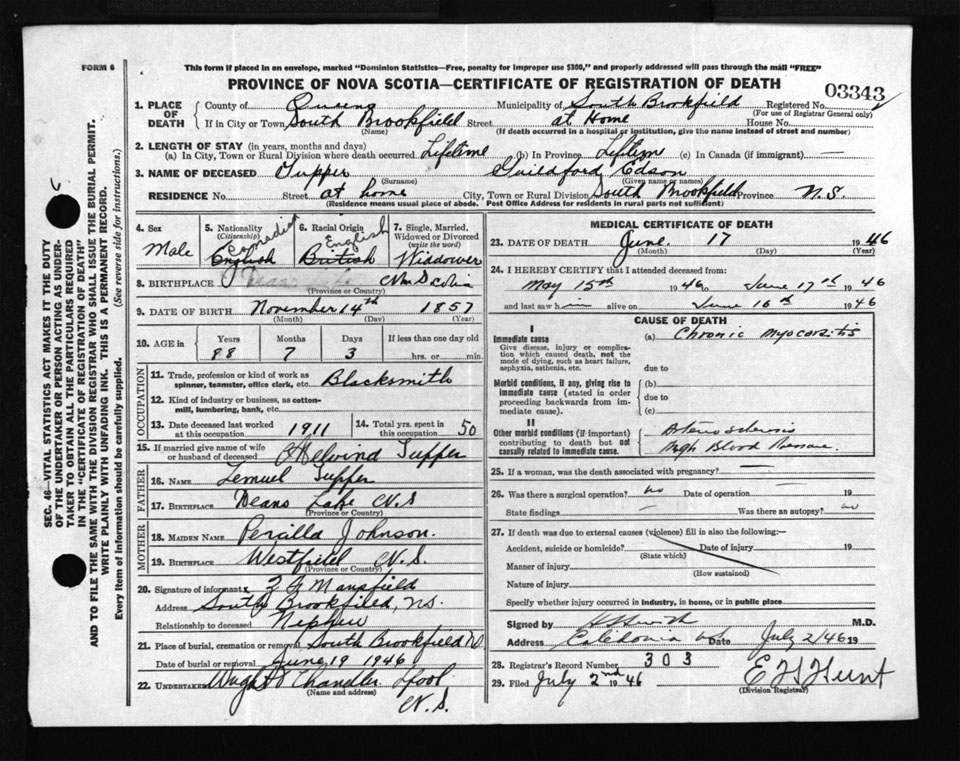 FORM 6
This form if placed in an envelope, marked "Dominion Statistics—Free, penalty for improper use $300," and properly addressed will pass through the mail "FREE"
PROVINCE OF NOVA SCOTIA—CERTIFICATE OF REGISTRATION OF DEATH
03343
1. PLACE OF DEATH { County of Queens Municipality of South Brookfield Registered No.
(For use of Registrar General only)
If in City or Town South Brookfield Street at Home House No.
(Name) (If death occurred in a hospital or institution, give the name instead of street and number)
2. LENGTH OF STAY (in years, months and days)
(a) In City, Town or Rural Division where death occurred Lifetime (b) In Province Lifetime (c) In Canada (if immigrant) —
3. NAME OF DECEASED Tupper Guildford Edson
(Surname) (Given name or names)
RESIDENCE No. Street at home City, Town or Rural Division South Brookfield Province N.S.
(Residence means usual place of abode. Post Office Address for residents in rural parts not sufficient)
4. Sex Male
5. Nationality (Citizenship) Canadian English
6. Racial Origin English British
7. Single, Married, Widowed or Divorced (write the word) Widdower
8. BIRTHPLACE Nova Scotia
(Province or Country)
9. DATE OF BIRTH November 14th 1857
(Month) (Day) (Year)
10. AGE in { Years Months Days If less than one day old
88 7 3 hrs. or min.
OCCUPATION
11. Trade, profession or kind of work as spinner, teamster, office clerk, etc. Blacksmith
12. Kind of industry or business, as cotton-mill, lumbering, bank, etc.
13. Date deceased last worked at this occupation 1911
14. Total yrs. spent in this occupation 50
15. If married give name of wife or husband of deceased Tupper
FATHER
16. NAME Lemuel Tupper
17. BIRTHPLACE Deans Lake N.S
(Province or Country)
MOTHER
18. MAIDEN NAME Percilla Johnson.
19. BIRTHPLACE Westfield N.S.
(Province or Country)
20. Signature of informant Mansfield
Address South Brookfield, N.S.
Relationship to deceased Nephew
21. Place of burial, cremation or removal South Brookfield
Date of burial or removal June 19 1946
22. UNDERTAKER Chandler Lpool
(Name and address)
N.S.
MEDICAL CERTIFICATE OF DEATH
23. DATE OF DEATH June. 17 1946
(Month) (Day) (Year)
24. I HEREBY CERTIFY that I attended deceased from:
May 15th 1946 to June 17th 1946
and last saw him alive on June 16th 1946
CAUSE OF DEATH
I
Immediate cause
Give disease, injury or complication which caused death, not the mode of dying, such as heart failure, asphyxia, asthenia, etc.
(a) Chronic Myocarditis
due to
Morbid conditions, if any, giving rise to immediate cause (stated in order proceeding backwards from immediate cause).
(b)
due to
(c)
II
Other morbid conditions (if important) contributing to death but not causally related to immediate cause.
Arteriosclerosis
High Blood Pressure
25. If a woman, was the death associated with pregnancy? —
26. Was there a surgical operation? no Date of operation — 19
State findings Was there an autopsy? no
27. If death was due to external causes (violence) fill in also the following:
Accident, suicide or homicide? Date of injury 19
(State which)
Manner of injury
(How sustained)
Nature of injury
Specify whether injury occurred in industry, in home, or in public place
Signed by M.D.
Address Caledonia Date July 2/46 19
28. Registrar's Record Number 303
29. Filed July 2nd 1946
(Division Registrar)
SEC. 46—VITAL STATISTICS ACT MAKES IT THE DUTY
OF THE UNDERTAKER OR PERSON ACTING AS UNDER-
TAKER TO OBTAIN ALL THE PARTICULARS REQUIRED
IN THE "CERTIFICATE OF REGISTRATION OF DEATH"
AND TO FILE THE SAME WITH THE DIVISION REGISTRAR WHO SHALL ISSUE THE BURIAL PERMIT.
WRITE PLAINLY WITH UNFADING INK. THIS IS A PERMANENT RECORD.
Every item of information should be carefully supplied. (See reverse side for instructions.)